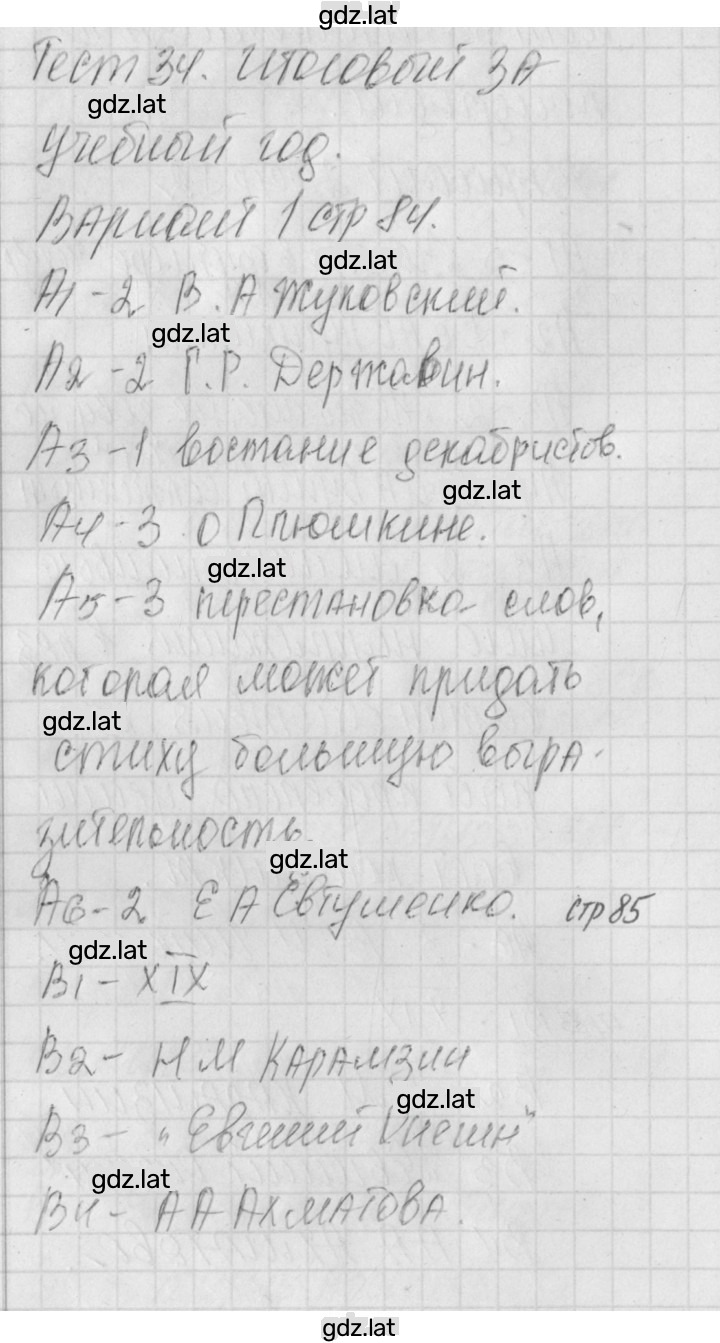 gdz.lat
Тест 34. Итоговый за
gdz.lat
учебный год.
Вариант 1 стр 84.
gdz.lat
А1 - 2 В. А Жуковский.
gdz.lat
А2 - 2 Г. Р. Державин.
А3 - 1 востание декабристов.
gdz.lat
А4 - 3 о Плюшкине.
gdz.lat
А5 - 3 перестановка слов,
которая может придать
gdz.lat
стиху большую выра-
зительность.
gdz.lat
А6 - 2 Е А Евтушенко. стр 85
gdz.lat
В1 - XIX
В2 - Н М Карамзин
gdz.lat
В3 - "Евгений Онегин"
gdz.lat
В4 - А А Ахматова.
gdz.lat